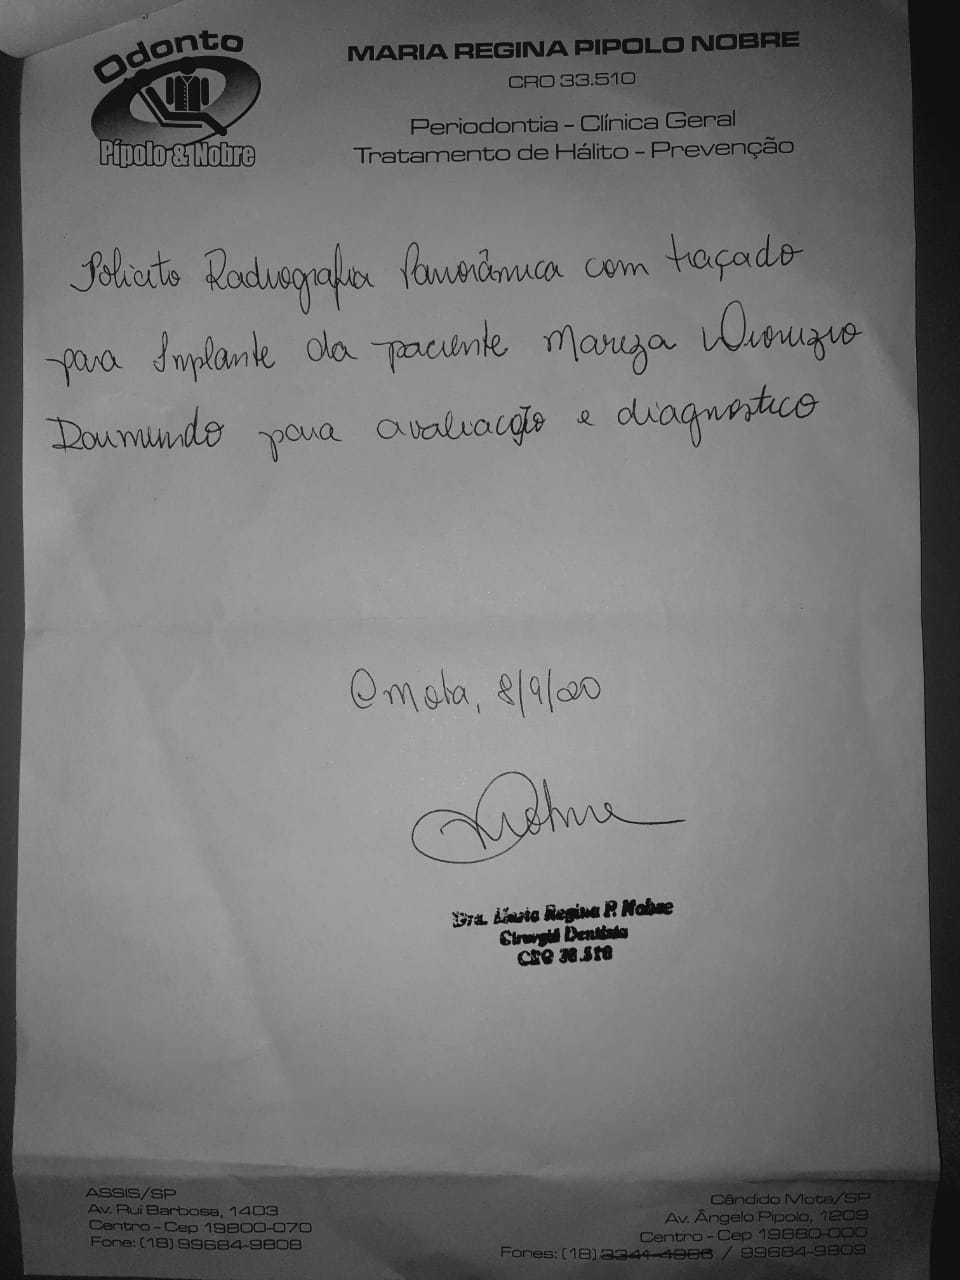 Odonto
Pípolo & Nobre
MARIA REGINA PIPOLO NOBRE
CRO 33.510
Periodontia - Clínica Geral
Tratamento de Hálito - Prevenção
Solicito Radiografia Panorâmica com traçado
para Implante da paciente Mareza Dionizio
Raimundo para avaliacção e diagnostico
C Mota, 8/9/20
Nobre
Dra. Maria Regina P. Nobre
Cirurgiã Dentista
CRO 33.510
ASSIS/SP
Av. Rui Barbosa, 1403
Centro - Cep 19800-070
Fone: (18) 99684-9808
Cândido Mota/SP
Av. Ângelo Pipolo, 1209
Centro - Cep 19880-000
Fones: (18) 3341-4986 / 99684-9809